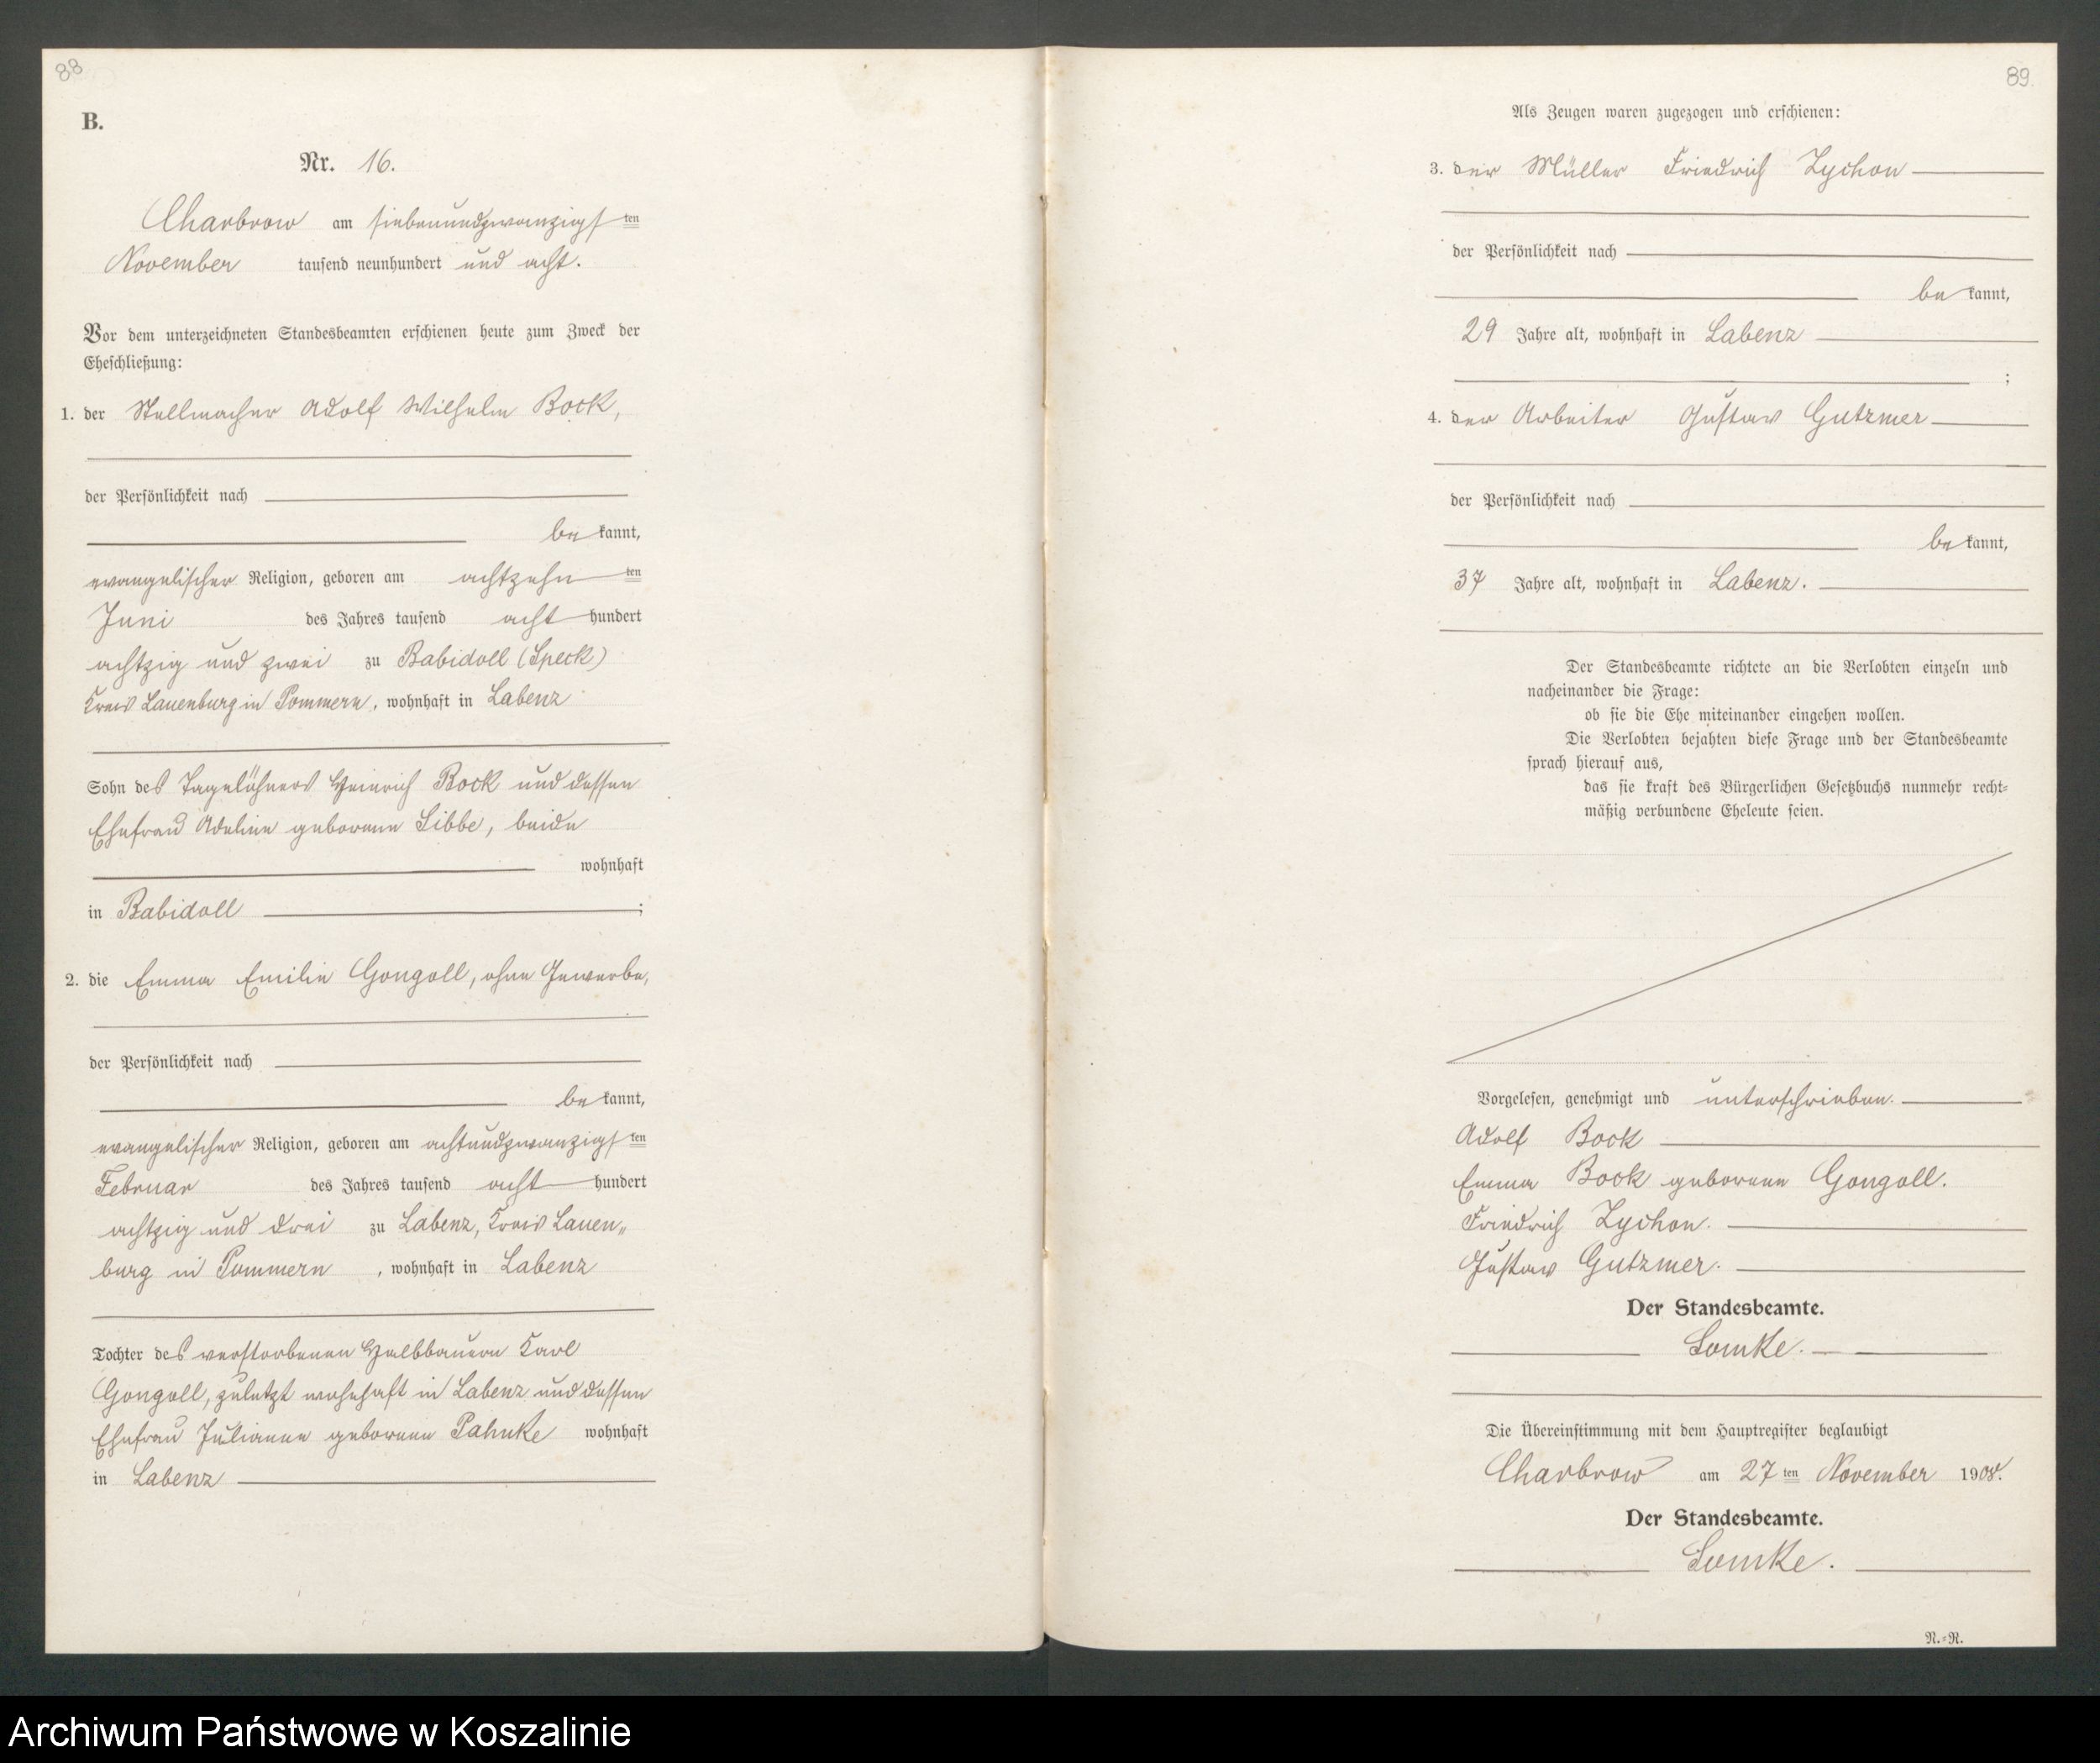 88
B.
Nr. 16.
Charbrow am siebenundzwanzigsten
November tausend neunhundert und acht.
Vor dem unterzeichneten Standesbeamten erschienen heute zum Zweck der
Eheschließung:
1. der Stellmacher Adolf Wilhelm Bock,
der Persönlichkeit nach
bekannt,
evangelischer Religion, geboren am achtzehnten
Juni des Jahres tausend achthundert
achtzig und zwei zu Babidoll (Speck)
Kreis Lauenburg in Pommern, wohnhaft in Labenz
Sohn des Tagelöhners Heinrich Bock und dessen
Ehefrau Adeline geborene Libbe, beide
wohnhaft
in Babidoll ;
2. die Emma Emilie Gongoll, ohne Gewerbe,
der Persönlichkeit nach
bekannt,
evangelischer Religion, geboren am achtundzwanzigsten
Februar des Jahres tausend achthundert
achtzig und drei zu Labenz, Kreis Lauen„
burg in Pommern, wohnhaft in Labenz
Tochter des verstorbenen Halbbauern Karl
Gongoll, zuletzt wohnhaft in Labenz und dessen
Ehefrau Julianne geborene Pahnke wohnhaft
in Labenz
89.
Als Zeugen waren zugezogen und erschienen:
3. der Müller Friedrich Zychon
der Persönlichkeit nach
bekannt,
29 Jahre alt, wohnhaft in Labenz
;
4. der Arbeiter Gustav Gutzmer
der Persönlichkeit nach
bekannt,
37 Jahre alt, wohnhaft in Labenz.
Der Standesbeamte richtete an die Verlobten einzeln und
nacheinander die Frage:
ob sie die Ehe miteinander eingehen wollen.
Die Verlobten bejahten diese Frage und der Standesbeamte
sprach hierauf aus,
das sie kraft des Bürgerlichen Gesetzbuchs nunmehr recht-
mäßig verbundene Eheleute seien.
Vorgelesen, genehmigt und unterschrieben.
Adolf Bock
Emma Bock geborene Gongoll.
Friedrich Zychon.
Gustav Gutzmer.
Der Standesbeamte.
Lomke.
Die Übereinstimmung mit dem Hauptregister beglaubigt
Charbrow am 27ten November 1908.
Der Standesbeamte.
Lomke.
N.-R.
Archiwum Państwowe w Koszalinie